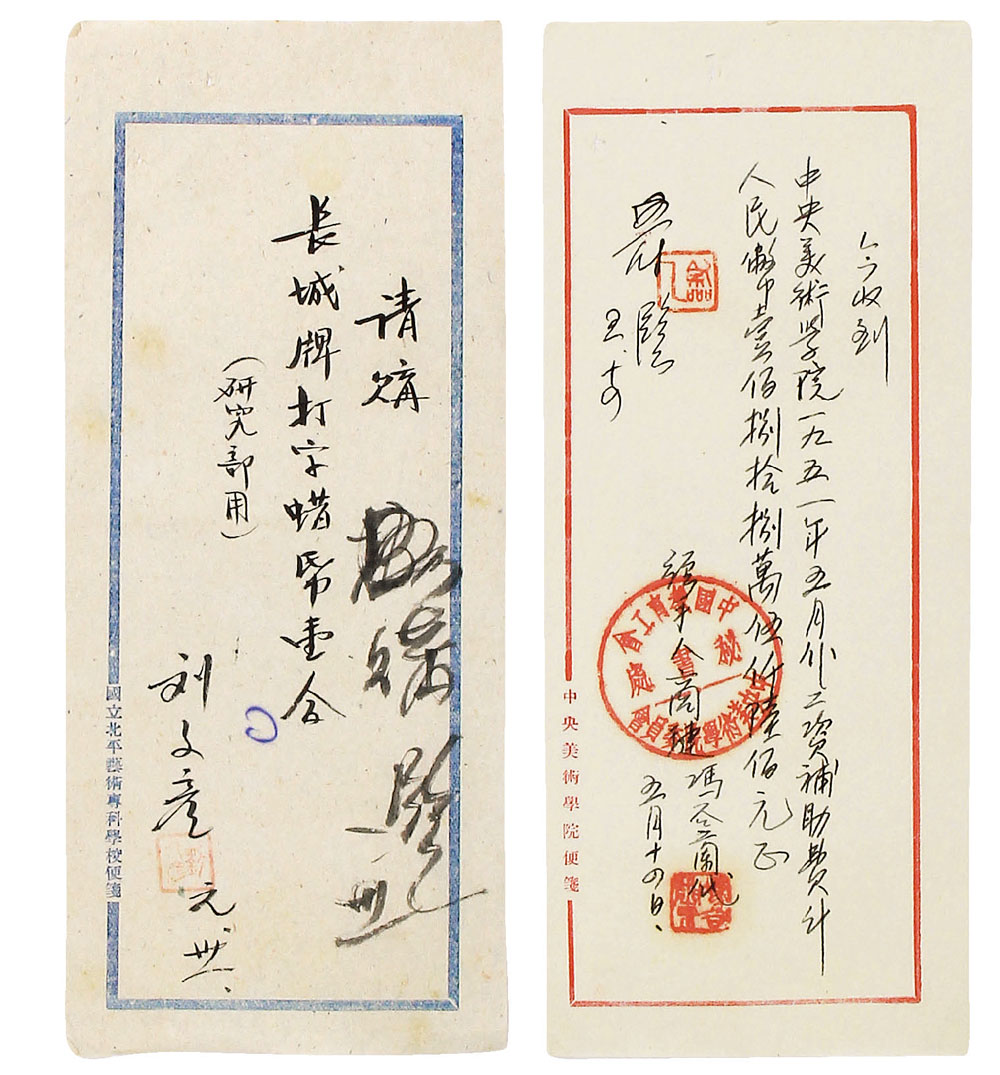 请购
長城牌打字蜡帋壹合
（研究部用）
刘文彦
元、卅一、
照購
國立北平藝術專科學校便箋
今收到
中央美術学院一九五一年五月份工資補助費計
人民幣壹佰捌拾捌萬伍仟陸佰元正
馮查蘭代
五月十四日、
五、十四
中國教育工會
秘書處
中央美術學院便箋